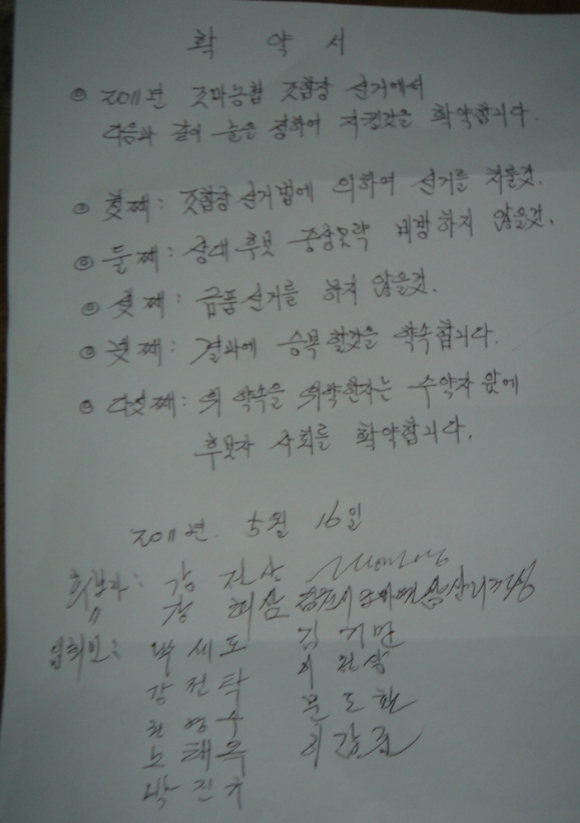 확 약 서
◎ 2011년 조마농협 조합장 선거에서
다음과 같이 술을 정하여 지킬것을 확약합니다.
◎ 첫째: 조합장 선거법에 의하여 선거를 치룰것.
◎ 둘째: 상대 후보 중상모략 비방하지 않을것.
◎ 셋째: 금품선거를 하지 않을것.
◎ 넷째: 결과에 승복할것을 약속합니다.
◎ 다섯째: 위 약속을 위약한자는 수약자 앞에
후보자 사퇴를 확약합니다.
2011년. 5월 16일
후보자: 강
〃
입회인: 박세도 김기만
강전탁
문도환
노태욱
박진우